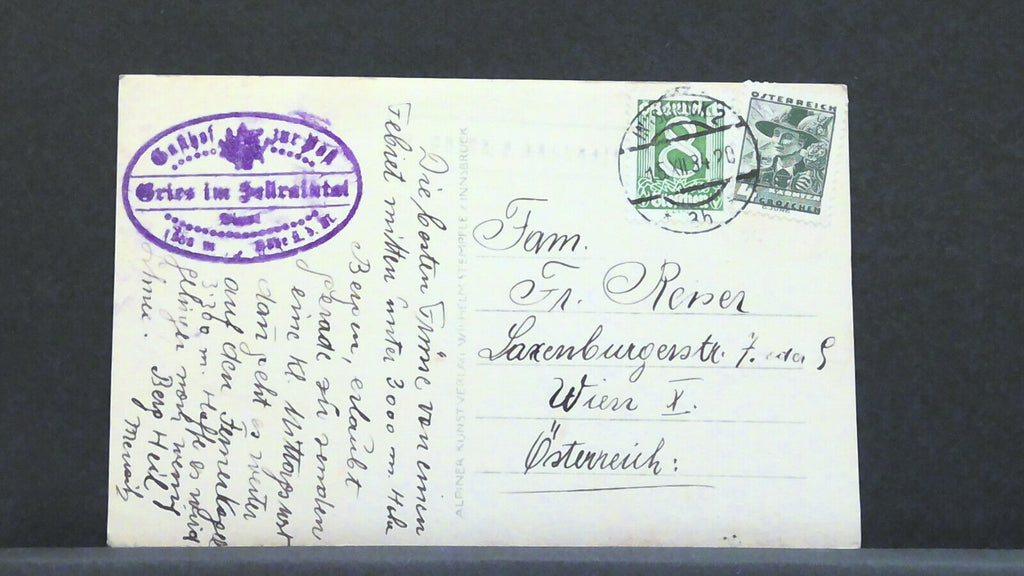 Gasthof zur Post
Gries im Sellraintal
Tirol
m Höhe ü. d. M.
Die besten Grüße von einem
Gebiet mitten unter 3000 m. Hohe
Bergen, erlaubt
gerade zu senden
eine kl. Mittagsrast
dann geht es weiter
auf den Fernerkogel
m. Hoffe es wird
gelingen von wenig
Berg Heil
ALPINER KUNSTVERLAG WILHELM STEMPFLE INNSBRUCK
ÖSTERREICH
8
ÖSTERREICH
GROSCHEN
Fam.
Fr. Reiser
Laxenburgerstr. 7. oder 9
Wien X.
Österreich: